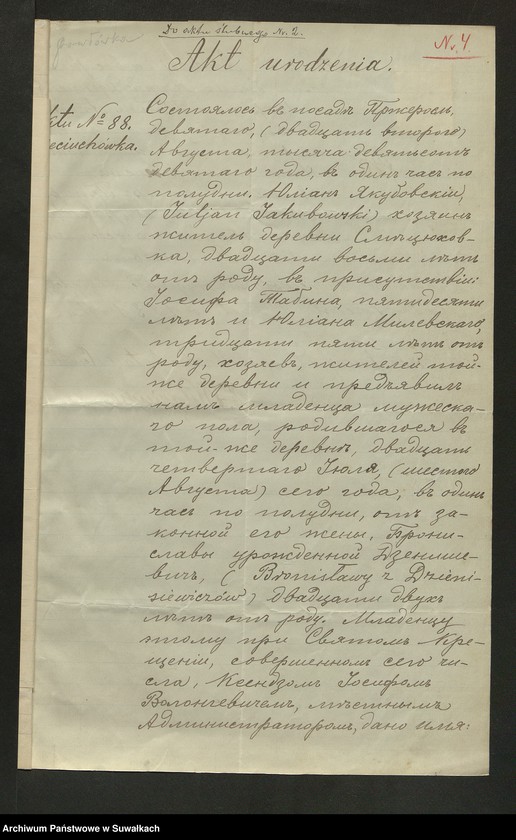 Do aktu ślubnego Nr. 2.
Nr. 4
Akt urodzenia.
ktu № 88.
eciuchówka.
Состоялось въ посадѣ Пржеросль,
девятаго, (двадцать второго)
Августа, тысяча девятьсотъ
девятаго года, въ одинъ часъ по
полудни. Юліанъ Якубовскій,
(Juljan Jakubowski) хозяинъ
житель деревни Смѣцюхов-
ка, двадцати восьми лѣтъ
отъ роду, въ присутствіи:
Іосифа Табина, пятидесяти
лѣтъ и Юліана Милевскаго,
тридцати пяти лѣтъ отъ
роду, хозяевъ, жителей той-
же деревни и предъявилъ
намъ младенца мужеска-
го пола, родившагося въ
той-же деревнѣ, двадцать
четвертаго Іюля, (шестого
Августа) сего года, въ одинъ
часъ по полудни, отъ за-
конной его жены, Брони-
славы урожденной Дзенише-
вичъ, (Bronisławy z Dzieni-
siewiczów) двадцати двухъ
лѣтъ отъ роду. Младенцу
этому при Святомъ Кре-
щеніи, совершенномъ сего чи-
сла, Ксендзомъ Іосифомъ
Волонгевичемъ, мѣстнымъ
Администраторомъ, дано имя:
Archiwum Państwowe w Suwałkach